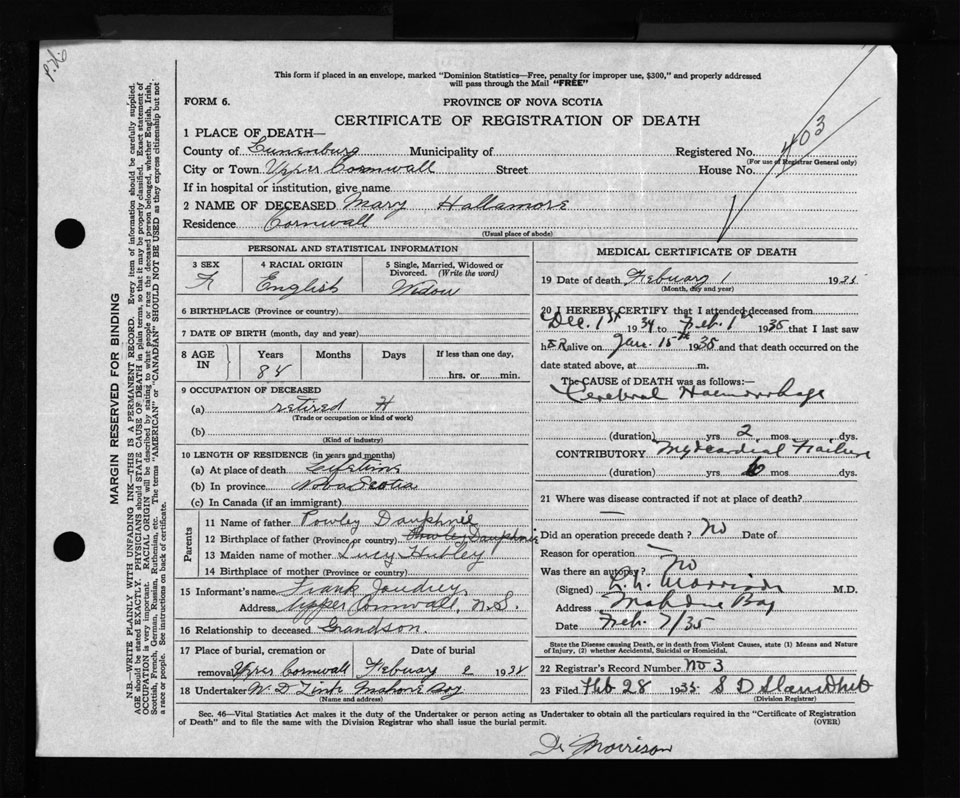 P.26
This form if placed in an envelope, marked "Dominion Statistics—Free, penalty for improper use, $300," and properly addressed
will pass through the Mail "FREE"
FORM 6.
PROVINCE OF NOVA SCOTIA
CERTIFICATE OF REGISTRATION OF DEATH
403
1 PLACE OF DEATH—
County of Lunenburg Municipality of Registered No.
(For use of Registrar General only)
City or Town Upper Cornwall Street House No.
If in hospital or institution, give name
2 NAME OF DECEASED Mary Hallamore
Residence Cornwall
(Usual place of abode)
PERSONAL AND STATISTICAL INFORMATION
3 SEX 4 RACIAL ORIGIN 5 Single, Married, Widowed or Divorced. (Write the word)
F English Widow
6 BIRTHPLACE (Province or country)
7 DATE OF BIRTH (month, day and year)
8 AGE IN Years Months Days If less than one day,
84 hrs. or min.
9 OCCUPATION OF DECEASED
(a) retired H
(Trade or occupation or kind of work)
(b)
(Kind of industry)
10 LENGTH OF RESIDENCE (in years and months)
(a) At place of death Lifetime
(b) In province Nova Scotia
(c) In Canada (if an immigrant)
Parents
11 Name of father Powley Dauphnie
12 Birthplace of father (Province or country) Powley Dauphnie
13 Maiden name of mother Lucy Hubley
14 Birthplace of mother (Province or country)
15 Informant's name Frank Joudrey
Address Upper Cornwall, N.S.
16 Relationship to deceased Grandson.
17 Place of burial, cremation or removal Date of burial
Upper Cornwall Febuary 2 1934
18 Undertaker W. D Zink Mahone Bay
(Name and address)
MEDICAL CERTIFICATE OF DEATH
19 Date of death Febuary 1 1935
(Month, day and year)
20 I HEREBY CERTIFY that I attended deceased from
Dec. 1st 1934 to Feb. 1st 1935 that I last saw
hER alive on Jan. 15th 1935 and that death occurred on the
date stated above, at m.
The CAUSE OF DEATH was as follows:—
Cerebral Haemorrhage
(duration) yrs 2 mos. dys.
CONTRIBUTORY Myocardial Failure
(duration) yrs 6 mos dys.
21 Where was disease contracted if not at place of death?
—
Did an operation precede death ? No Date of
Reason for operation —
Was there an autopsy? No
(Signed) Morrison M.D.
Address Mahone Bay
Date Feb. 7/35
State the Disease causing Death, or in death from Violent causes, state (1) Means and Nature
of Injury, (2) whether Accidental, Suicidal or Homicidal.
22 Registrar's Record Number No 3
23 Filed Feb 28 1935 S D
(Division Registrar)
Sec. 46—Vital Statistics Act makes it the duty of the Undertaker or person acting as Undertaker to obtain all the particulars required in the "Certificate of Registration
of Death" and to file the same with the Division Registrar who shall issue the burial permit.
(OVER)
Dr Morrison
MARGIN RESERVED FOR BINDING
N.B.—WRITE PLAINLY WITH UNFADING INK—THIS IS A PERMANENT RECORD. Every item of information should be carefully supplied.
AGE should be stated EXACTLY. PHYSICIANS should STATE CAUSE OF DEATH in plain terms, so that it may be properly classified. Exact statement of
OCCUPATION is very important. RACIAL ORIGIN will be described by stating to what people or race the deceased person belonged, whether English, Irish,
Scottish, French, German, Russian, Ruthenian, etc. The terms "AMERICAN" or "CANADIAN" SHOULD NOT BE USED as they express citizenship but not
a race or people. See instructions on back of certificate.